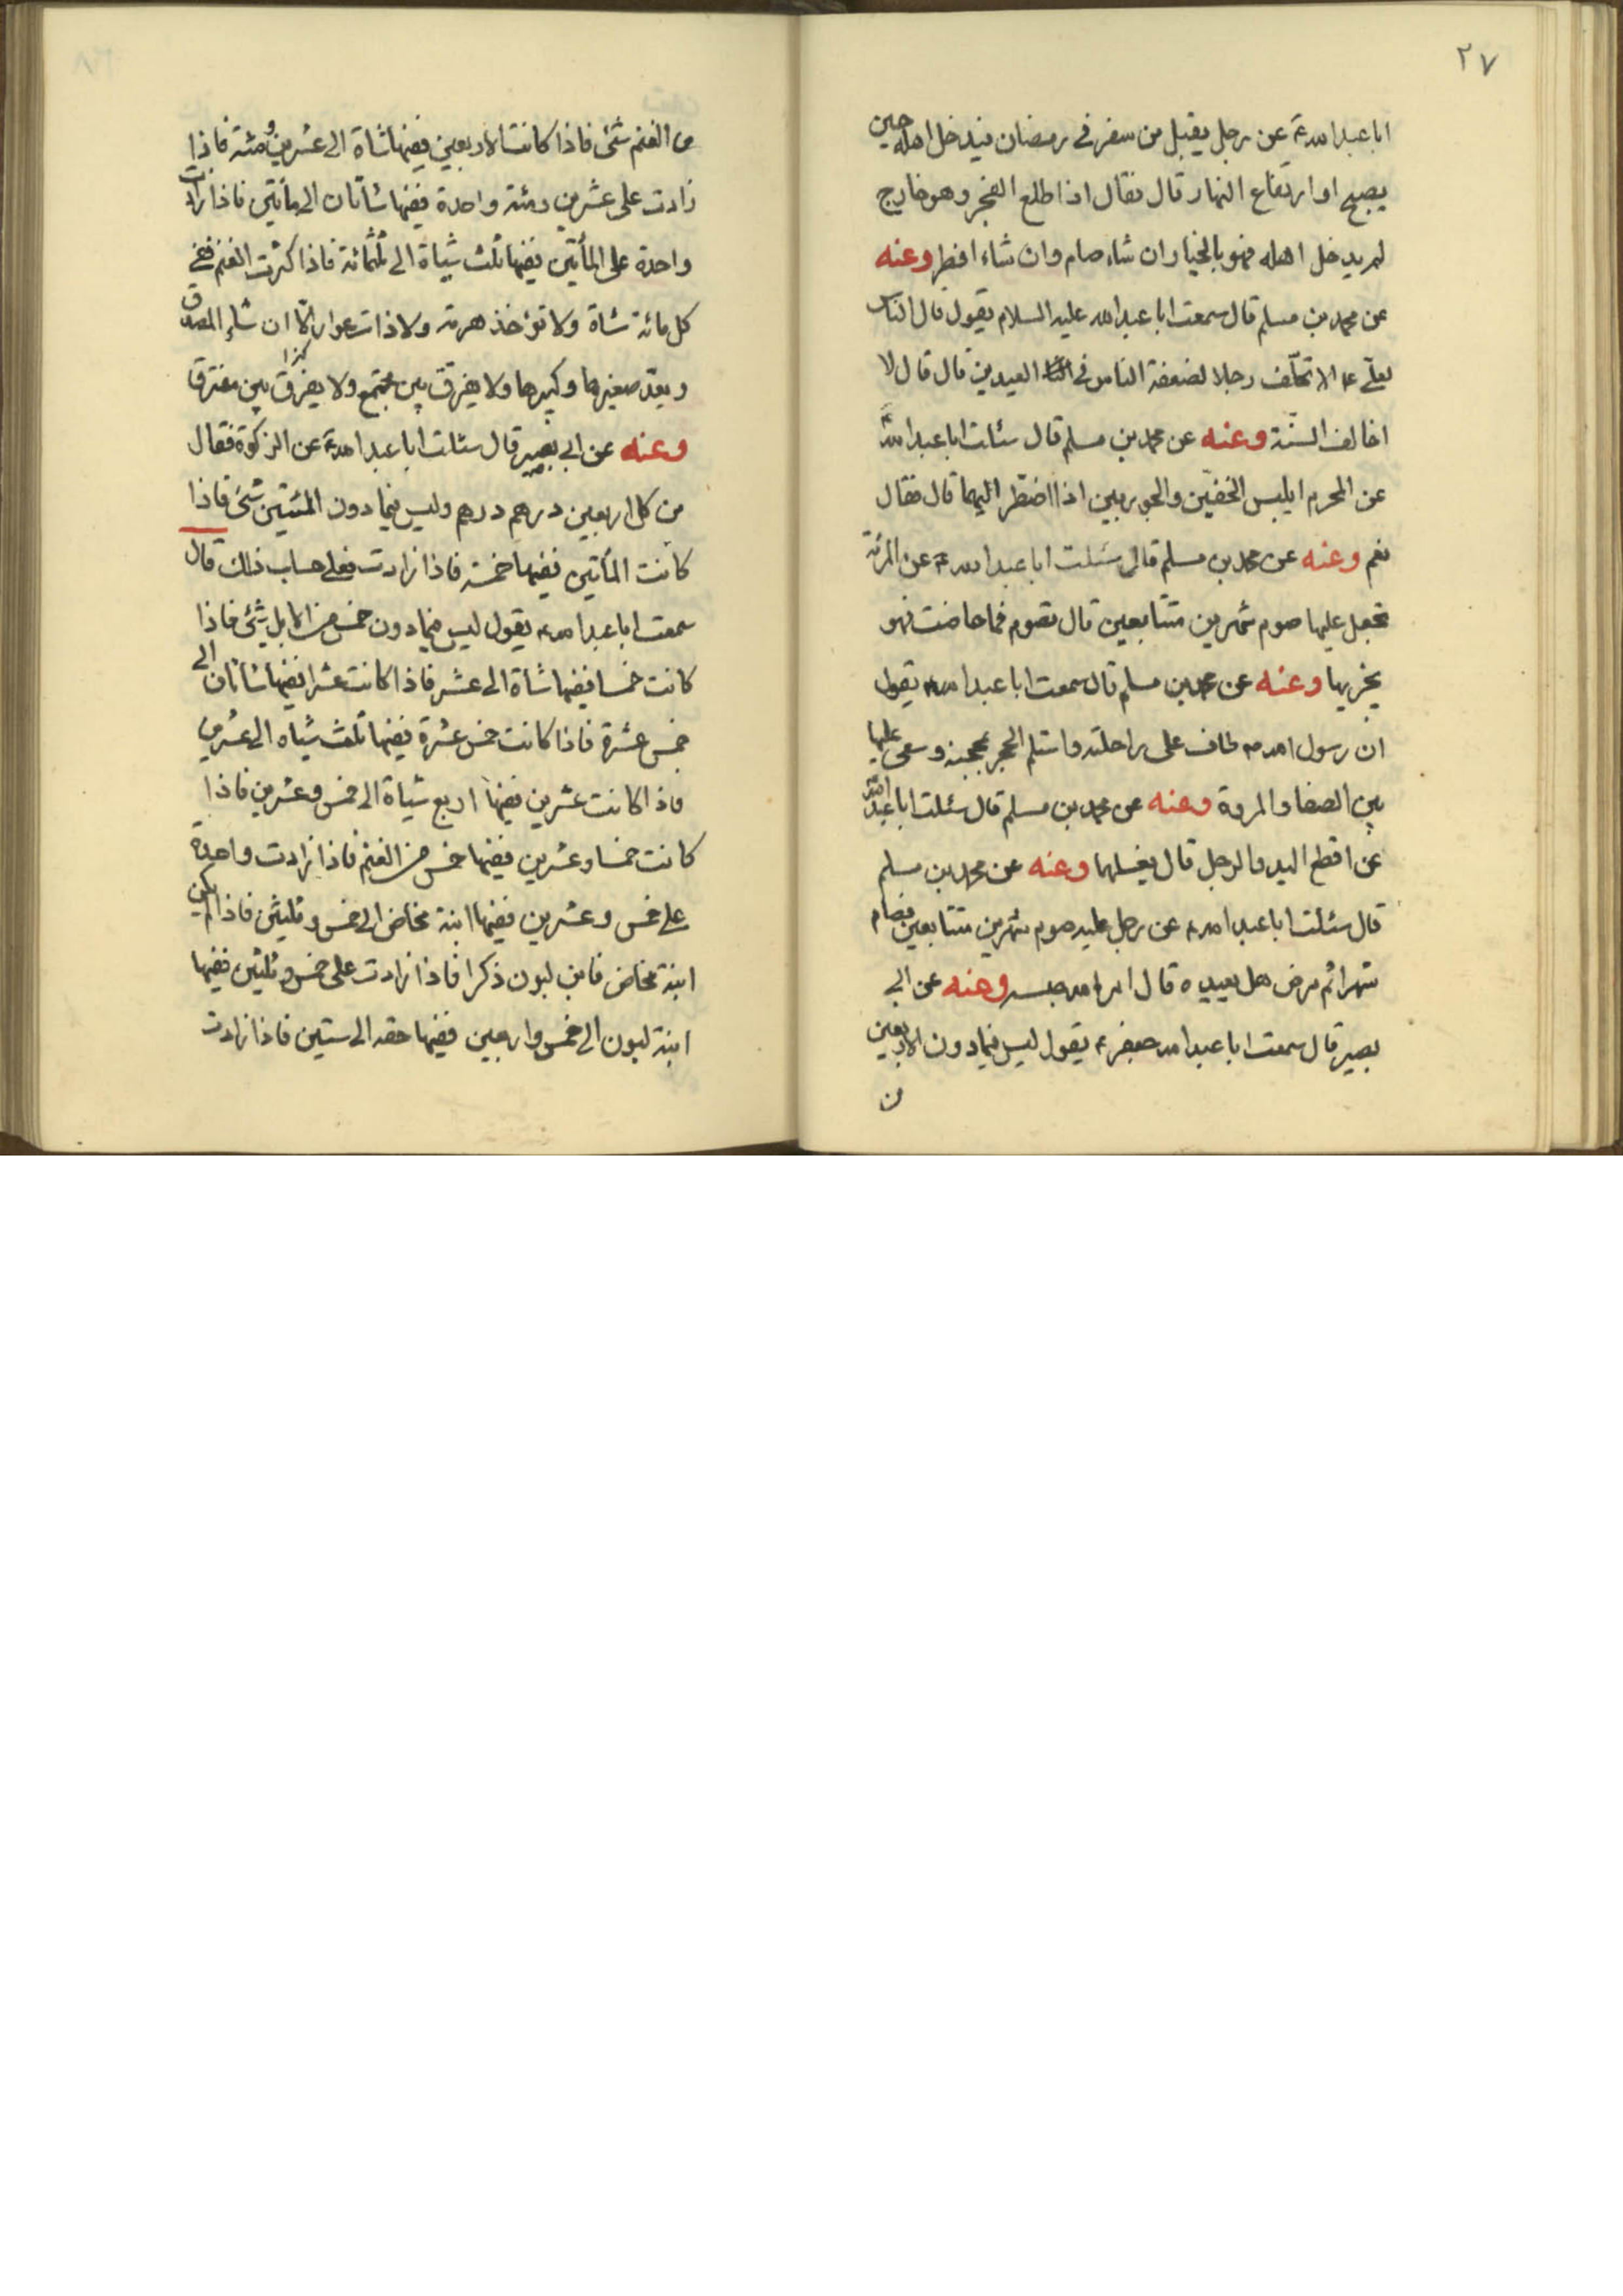 ٢٧
ابا عبد الله ع عن رجل يقبل من سفر في رمضان فيدخل اهله حين
يصبح او ارتفاع النهار قال فقال اذا طلع الفجر وهو خارج
لم يدخل اهله فهو بالخيار ان شاء صام وان شاء افطر وعنه
عن محمد بن مسلم قال سمعت ابا عبد الله عليه السلام يقول قال الناس
لعلي ع الا تخلف رجلا لضعفة الناس في العيدين قال قال لا
اخالف السنّة وعنه عن محمد بن مسلم قال سئلت ابا عبد الله ع
عن المحرم ايلبس الخفّين والجوربين اذا اضطر اليهما قال فقال
نعم وعنه عن محمد بن مسلم قال سئلت ابا عبد الله ع عن المرئة
تجعل عليها صوم شهرين متتابعين قال تصوم فما حاضت فهو
يجزيها وعنه عن محمد بن مسلم قال سمعت ابا عبد الله ع يقول
ان رسول الله ص طاف على راحلته واستلم الحجر بمحجنه وسعى عليها
بين الصفا والمروة وعنه عن محمد بن مسلم قال سئلت ابا عبد الله
عن اقطع اليد والرجل قال يغسلهما وعنه عن محمد بن مسلم
قال سئلت ابا عبد الله ع عن رجل عليه صوم شهرين متتابعين فصام
شهرا ثم مرض هل يعيده قال الله حبسه وعنه عن ابي
بصير قال سمعت ابا عبد الله جعفر ع يقول ليس فيما دون الاربعين
من
من الغنم شئ فاذا كانت الاربعين ففيها شاة الى عشرين ومئة فاذا
زادت على عشرين ومئة واحدة ففيها شاتان الى مأتين فاذا زادت
واحدة على المأتين ففيها ثلث شياة الى ثلثمائة فاذا كثرت الغنم ففي
كل مائة شاة ولا تؤخذ هرمة ولا ذات عوار الّا ان شاء المصدق
ويعدّ صغيرها وكبيرها ولا يفرق بين مجتمع ولا يفرّق كذا بين مفترق
وعنه عن ابي بصير قال سئلت ابا عبد الله ع عن الزكوة فقال
من كل اربعين درهم درهم وليس فيما دون المئتين شئ فاذا
كانت المأتين ففيها خمسة فاذا زادت فعلى حساب ذلك قال
سمعت ابا عبد الله ع يقول ليس فيما دون خمس من الابل شئ فاذا
كانت خمسا ففيها شاة الى عشر فاذا كانت عشرا ففيها شاتان الى
خمس عشرة فاذا كانت خمس عشرة ففيها ثلث شياه الى عشرين
فاذا كانت عشرين ففيها اربع شياة الى خمس وعشرين فاذا
كانت خمسا وعشرين ففيها خمس من الغنم فاذا زادت واحدة
على خمس وعشرين ففيها ابنة مخاض الى خمس وثلثين فاذا لم يكن
ابنة مخاض فابن لبون ذكرا فاذا زادت على خمس وثلثين ففيها
ابنة لبون الى خمس واربعين ففيها حقه الى ستين فاذا زادت